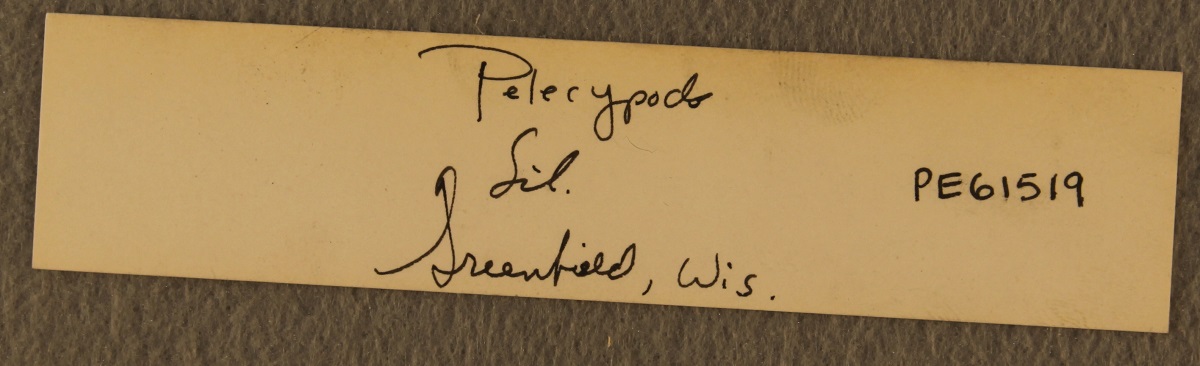 Pelecypods
Sil.
PE61519
Greenfield, Wis.